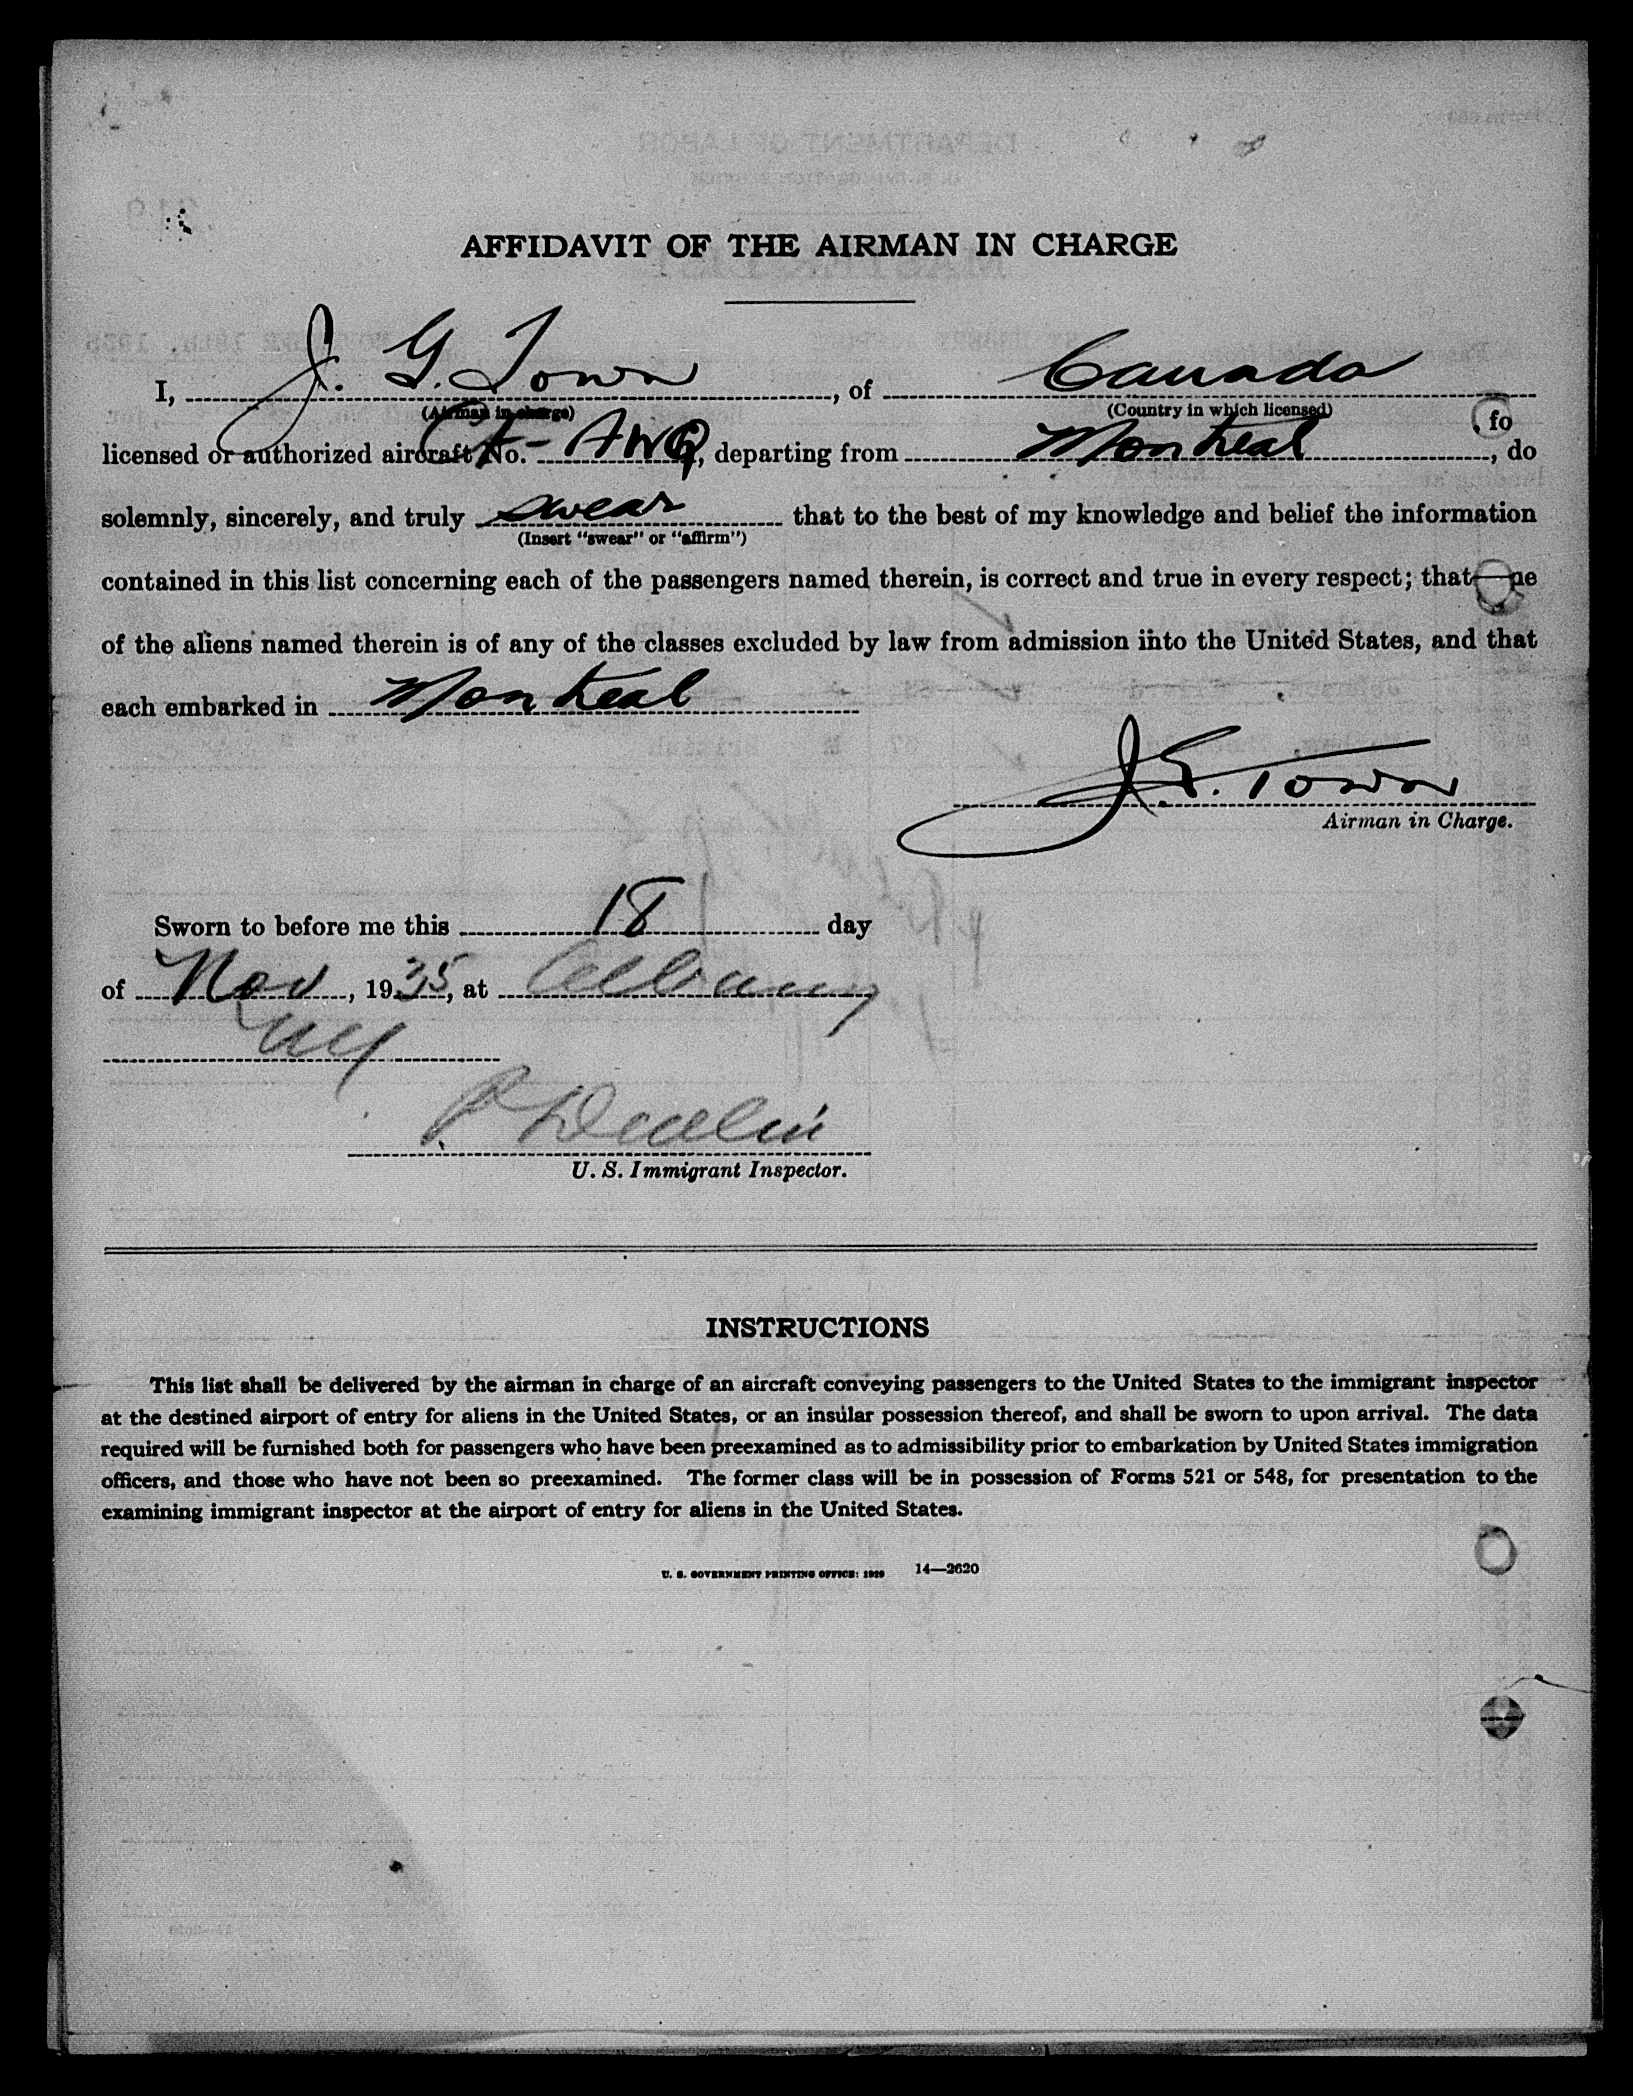 AFFIDAVIT OF THE AIRMAN IN CHARGE
I, J. G. Town, of Canada
(Airman in charge) (Country in which licensed)
licensed or authorized aircraft No. CF-AWQ, departing from Montreal, do
solemnly, sincerely, and truly swear that to the best of my knowledge and belief the information
(Insert "swear" or "affirm")
contained in this list concerning each of the passengers named therein, is correct and true in every respect; that
of the aliens named therein is of any of the classes excluded by law from admission into the United States, and that
each embarked in Montreal
J. G. Town
Airman in Charge.
Sworn to before me this 18 day
of Nov, 1935, at Albany
NY
U. S. Immigrant Inspector.
INSTRUCTIONS
This list shall be delivered by the airman in charge of an aircraft conveying passengers to the United States to the immigrant inspector
at the destined airport of entry for aliens in the United States, or an insular possession thereof, and shall be sworn to upon arrival. The data
required will be furnished both for passengers who have been preexamined as to admissibility prior to embarkation by United States immigration
officers, and those who have not been so preexamined. The former class will be in possession of Forms 521 or 548, for presentation to the
examining immigrant inspector at the airport of entry for aliens in the United States.
U. S. GOVERNMENT PRINTING OFFICE: 1929 14—2620